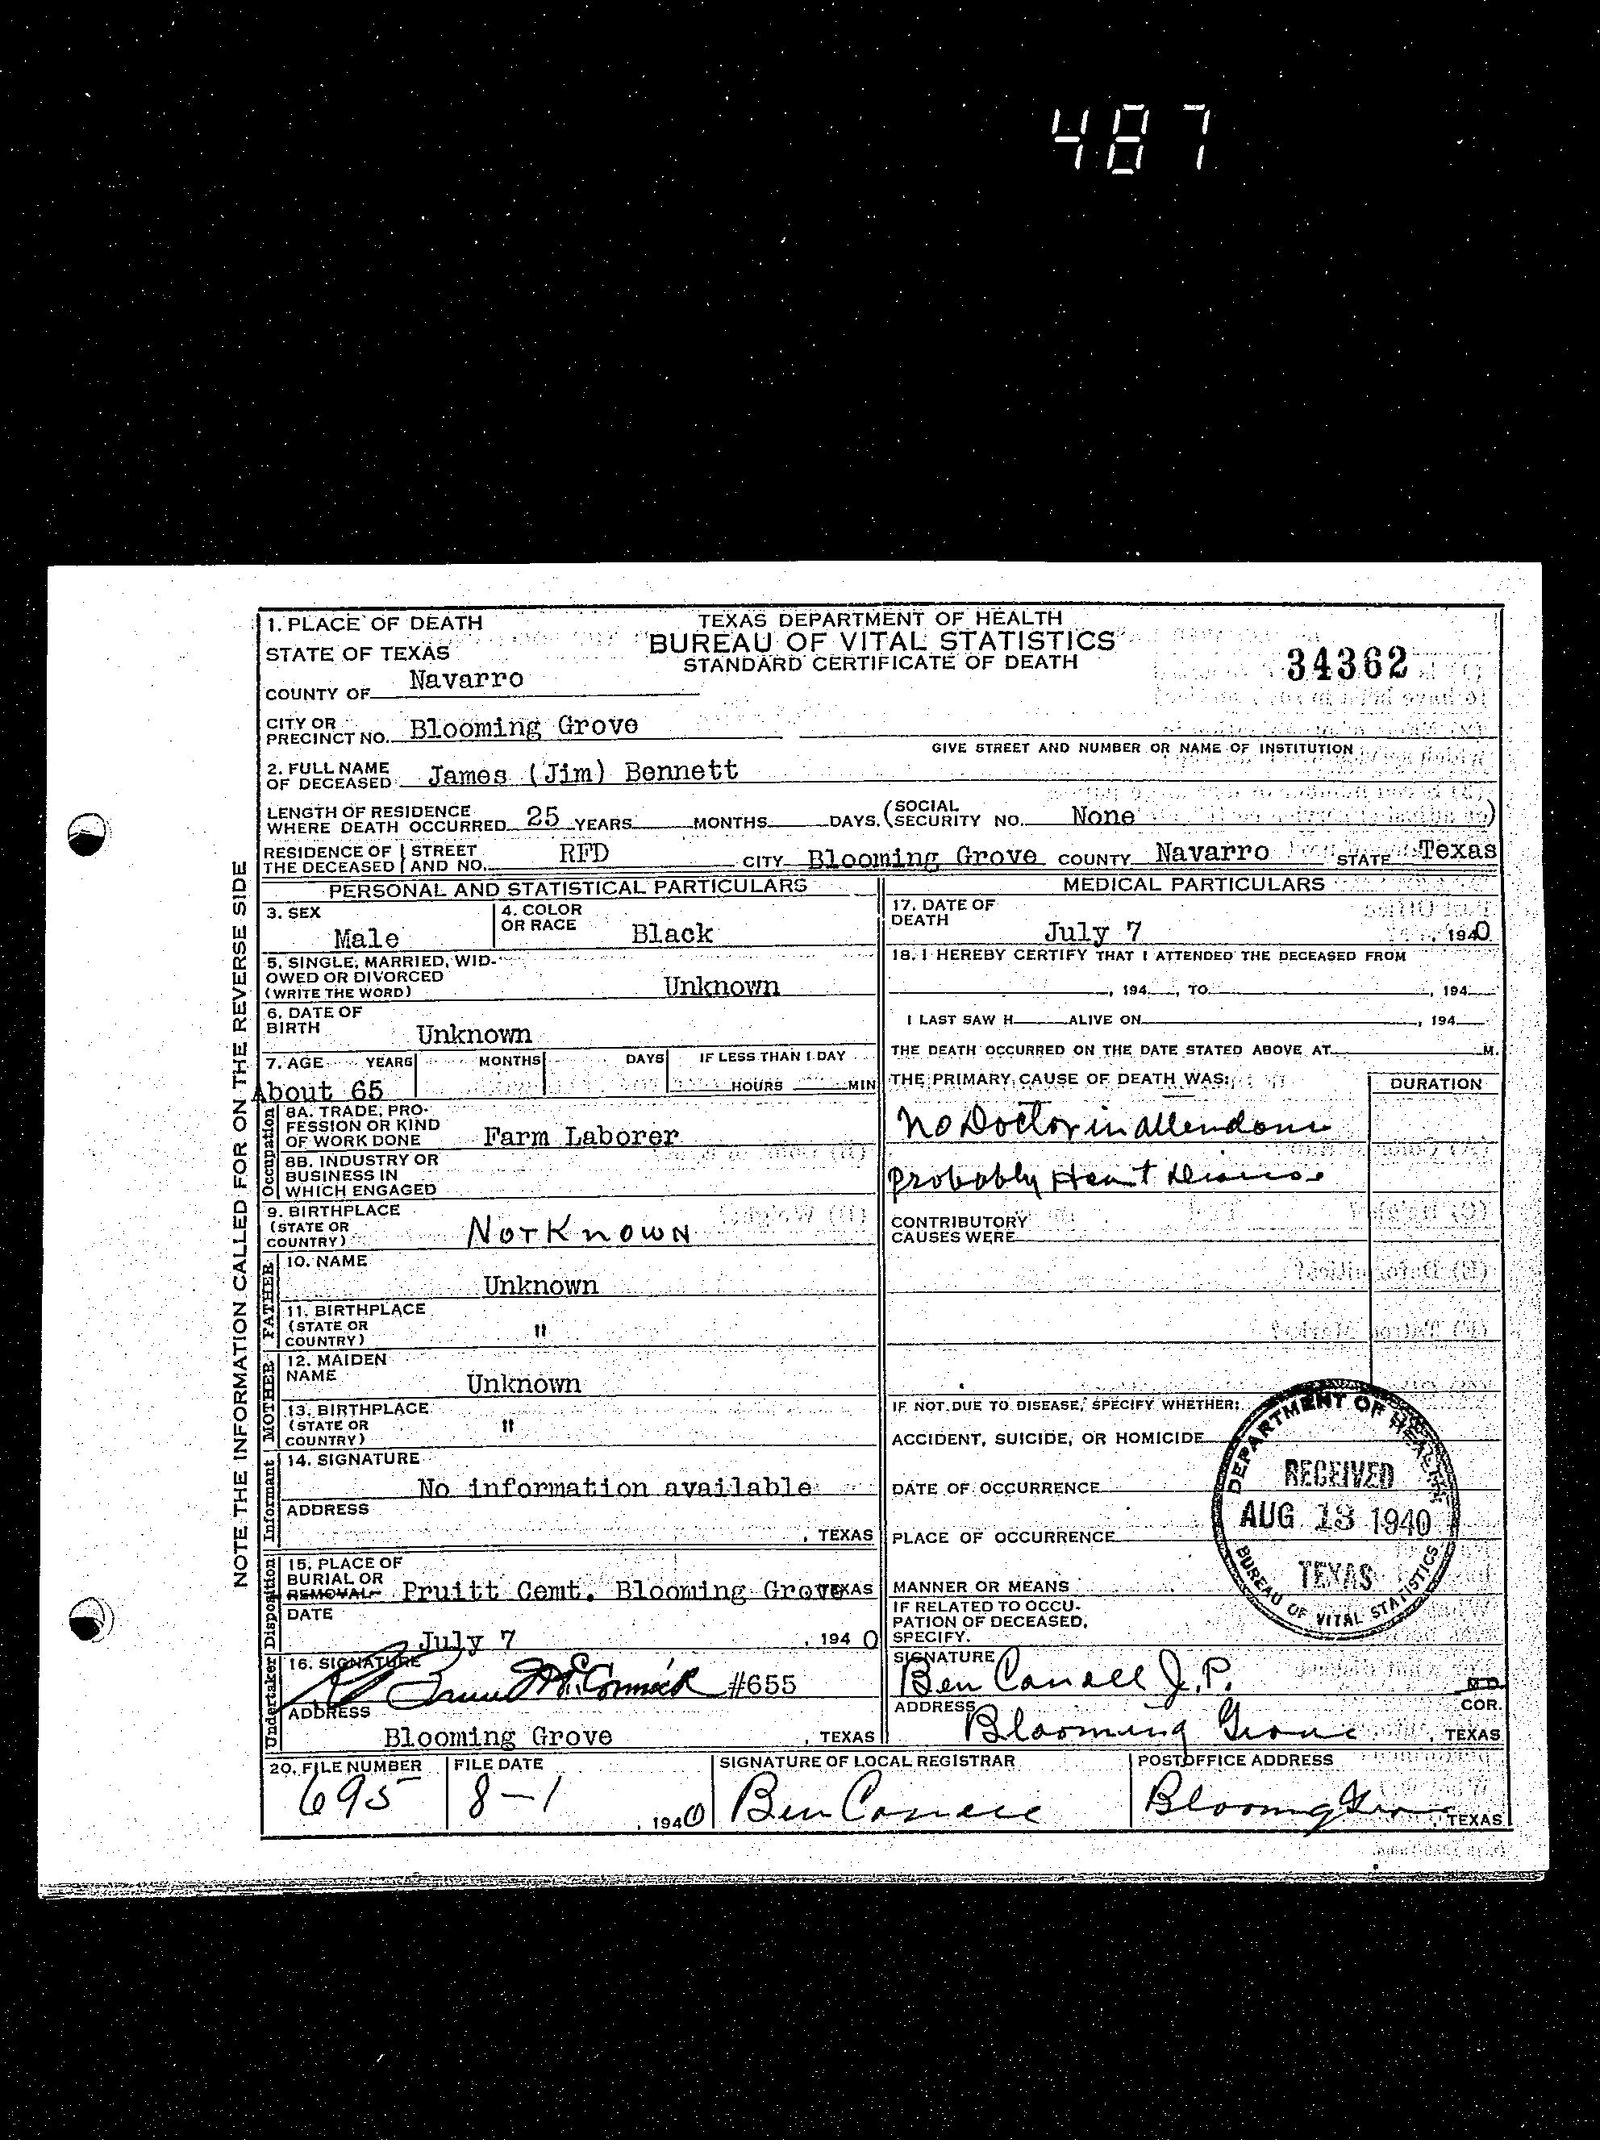 487
1. PLACE OF DEATH
STATE OF TEXAS
COUNTY OF Navarro
TEXAS DEPARTMENT OF HEALTH
BUREAU OF VITAL STATISTICS
STANDARD CERTIFICATE OF DEATH
34362
CITY OR
PRECINCT NO. Blooming Grove
GIVE STREET AND NUMBER OR NAME OF INSTITUTION
2. FULL NAME
OF DECEASED James (Jim) Bennett
LENGTH OF RESIDENCE
WHERE DEATH OCCURRED 25 YEARS MONTHS DAYS. (SOCIAL SECURITY NO. None )
RESIDENCE OF THE DECEASED STREET AND NO. RFD CITY Blooming Grove COUNTY Navarro STATE Texas
NOTE THE INFORMATION CALLED FOR ON THE REVERSE SIDE
PERSONAL AND STATISTICAL PARTICULARS
3. SEX Male
4. COLOR OR RACE Black
5. SINGLE, MARRIED, WID-
OWED OR DIVORCED
(WRITE THE WORD) Unknown
6. DATE OF
BIRTH Unknown
7. AGE YEARS MONTHS DAYS IF LESS THAN 1 DAY
About 65 HOURS MIN
Occupation
8A. TRADE, PRO-
FESSION OR KIND
OF WORK DONE Farm Laborer
8B. INDUSTRY OR
BUSINESS IN
WHICH ENGAGED
9. BIRTHPLACE
(STATE OR
COUNTRY) Not Known
FATHER
10. NAME Unknown
11. BIRTHPLACE
(STATE OR
COUNTRY) "
MOTHER
12. MAIDEN
NAME Unknown
13. BIRTHPLACE
(STATE OR
COUNTRY) "
Informant
14. SIGNATURE No information available
ADDRESS , TEXAS
Disposition
15. PLACE OF
BURIAL OR
REMOVAL Pruitt Cemt. Blooming Grove TEXAS
DATE July 7 , 1940
Undertaker
16. SIGNATURE McCormick #655
ADDRESS Blooming Grove , TEXAS
MEDICAL PARTICULARS
17. DATE OF
DEATH July 7 , 1940
18. I HEREBY CERTIFY THAT I ATTENDED THE DECEASED FROM
, 194 , TO , 194
I LAST SAW H ALIVE ON , 194
THE DEATH OCCURRED ON THE DATE STATED ABOVE AT M.
THE PRIMARY CAUSE OF DEATH WAS: DURATION
No Doctor in attendanc
Probably Heart Disease
CONTRIBUTORY
CAUSES WERE
IF NOT DUE TO DISEASE, SPECIFY WHETHER:
ACCIDENT, SUICIDE, OR HOMICIDE
DATE OF OCCURRENCE
PLACE OF OCCURRENCE
MANNER OR MEANS
IF RELATED TO OCCU-
PATION OF DECEASED,
SPECIFY.
DEPARTMENT OF HEALTH
RECEIVED
AUG 13 1940
TEXAS
BUREAU OF VITAL STATISTICS
SIGNATURE Ben J.P. M.D.
COR.
ADDRESS Blooming Grove , TEXAS
20. FILE NUMBER 695
FILE DATE 8-1 , 1940
SIGNATURE OF LOCAL REGISTRAR Ben
POSTOFFICE ADDRESS Blooming Grove , TEXAS